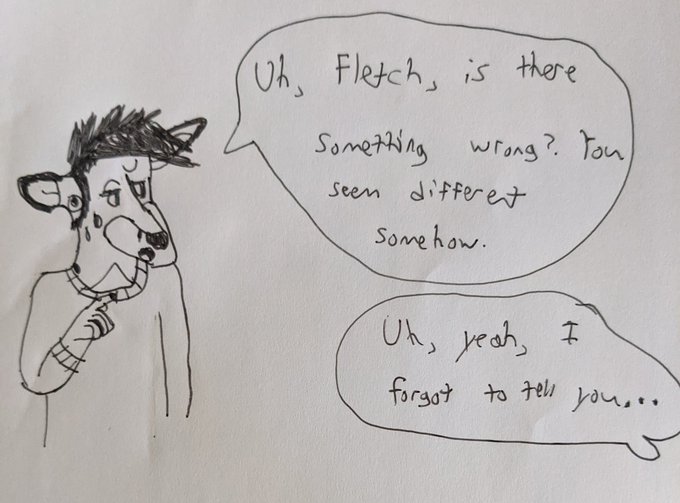 Uh, Fletch, is there
something wrong? You
seem different
somehow.
Uh, yeah, I
forgot to tell you...